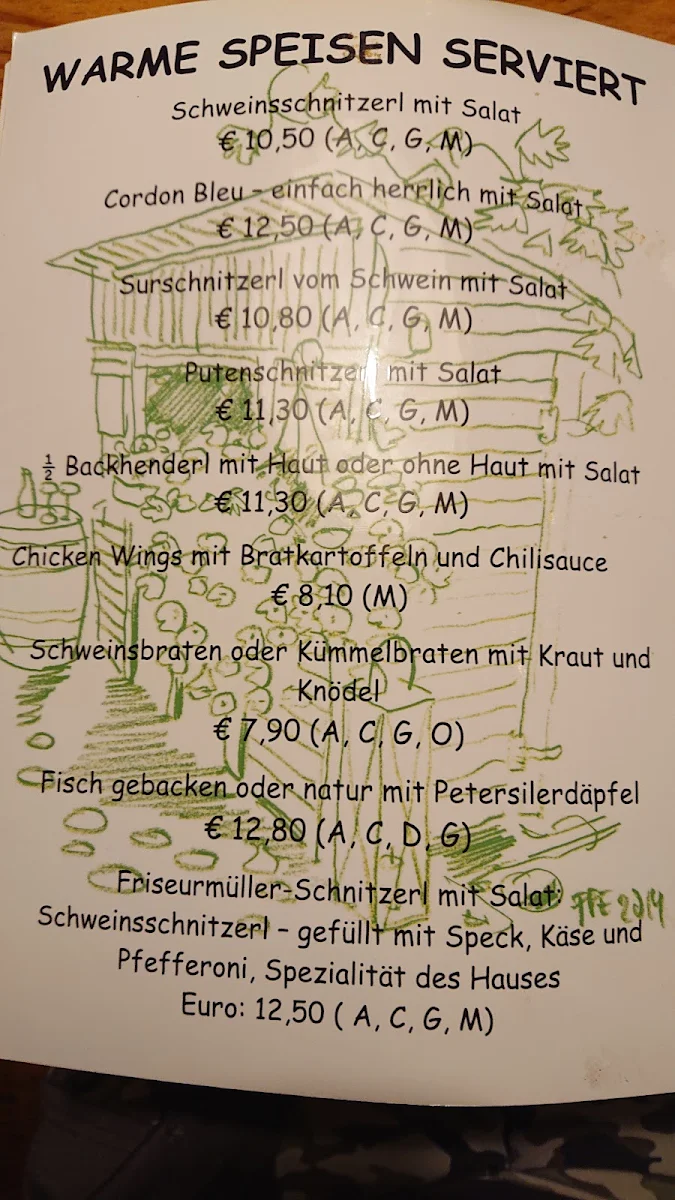 WARME SPEISEN SERVIERT
Schweinsschnitzerl mit Salat
€ 10,50 (A, C, G, M)
Cordon Bleu - einfach herrlich mit Salat
€ 12,50 (A, C, G, M)
Surschnitzerl vom Schwein mit Salat
€ 10,80 (A, C, G, M)
Putenschnitzerl mit Salat
€ 11,30 (A, C, G, M)
½ Backhenderl mit Haut oder ohne Haut mit Salat
€ 11,30 (A, C, G, M)
Chicken Wings mit Bratkartoffeln und Chilisauce
€ 8,10 (M)
Schweinsbraten oder Kümmelbraten mit Kraut und
Knödel
€ 7,90 (A, C, G, O)
Fisch gebacken oder natur mit Petersilerdäpfel
€ 12,80 (A, C, D, G)
Friseurmüller-Schnitzerl mit Salat:
2014
Schweinsschnitzerl - gefüllt mit Speck, Käse und
Pfefferoni, Spezialität des Hauses
Euro: 12,50 ( A, C, G, M)